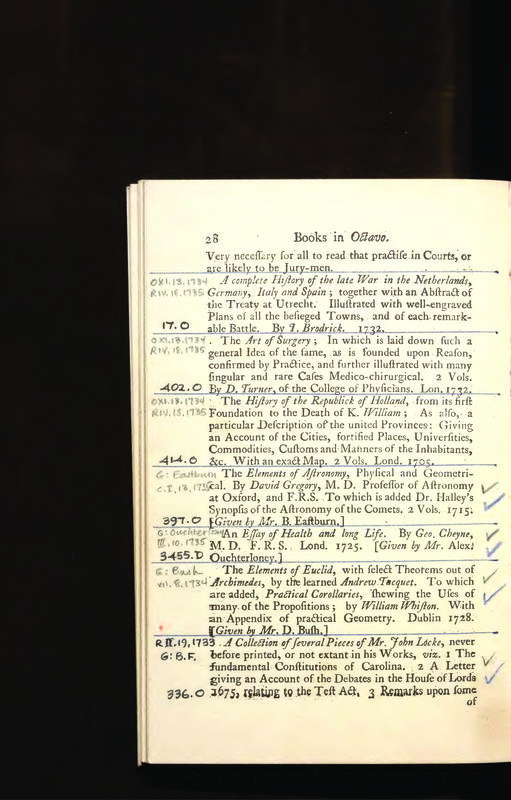 28 Books in Octavo.
Very neceſſary for all to read that practiſe in Courts, or
are likely to be Jury-men.
OXI.13.1734 A complete Hiſtory of the late War in the Netherlands,
RIV.18.1735 Germany, Italy and Spain ; together with an Abſtract of
the Treaty at Utrecht. Illuſtrated with well-engraved
Plans of all the beſieged Towns, and of each remark-
17.O able Battle. By T. Brodrick. 1732.
OXI.13.1734 The Art of Surgery ; In which is laid down ſuch a
RIV.18.1735 general Idea of the ſame, as is founded upon Reaſon,
confirmed by Practice, and further illuſtrated with many
ſingular and rare Caſes Medico-chirurgical. 2 Vols.
402.O By D. Turner, of the College of Phyſicians. Lon. 1732.
OXI.13.1734 The Hiſtory of the Republick of Holland, from its firſt
RIV.18.1735 Foundation to the Death of K. William ; As alſo, a
particular Deſcription of the united Provinces: Giving
an Account of the Cities, fortified Places, Univerſities,
Commodities, Cuſtoms and Manners of the Inhabitants,
414.O &c. With an exact Map. 2 Vols. Lond. 1705.
G: Eastburn The Elements of Aſtronomy, Phyſical and Geometri-
cal. By David Gregory, M. D. Profeſſor of Aſtronomy
at Oxford, and F.R.S. To which is added Dr. Halley's
Synopſis of the Aſtronomy of the Comets. 2 Vols. 1715.
397.O [Given by Mr. B. Eaſtburn.]
G: Ouchterloney An Eſſay of Health and long Life. By Geo. Cheyne,
III.10.1735 M. D. F. R. S. Lond. 1725. [Given by Mr. Alex:
3455.D Ouchterloney.]
G: Bush The Elements of Euclid, with ſelect Theorems out of
VII.8.1734 Archimedes, by the learned Andrew Tacquet. To which
are added, Practical Corollaries, ſhewing the Uſes of
many of the Propoſitions ; by William Whiſton. With
an Appendix of practical Geometry. Dublin 1728.
[Given by Mr. D. Buſh.]
R II.19,1733 A Collection of ſeveral Pieces of Mr. John Locke, never
G: B.F. before printed, or not extant in his Works, viz. 1 The
fundamental Conſtitutions of Carolina. 2 A Letter
giving an Account of the Debates in the Houſe of Lords
336.O 1675, relating to the Teſt Act, 3 Remarks upon ſome
of